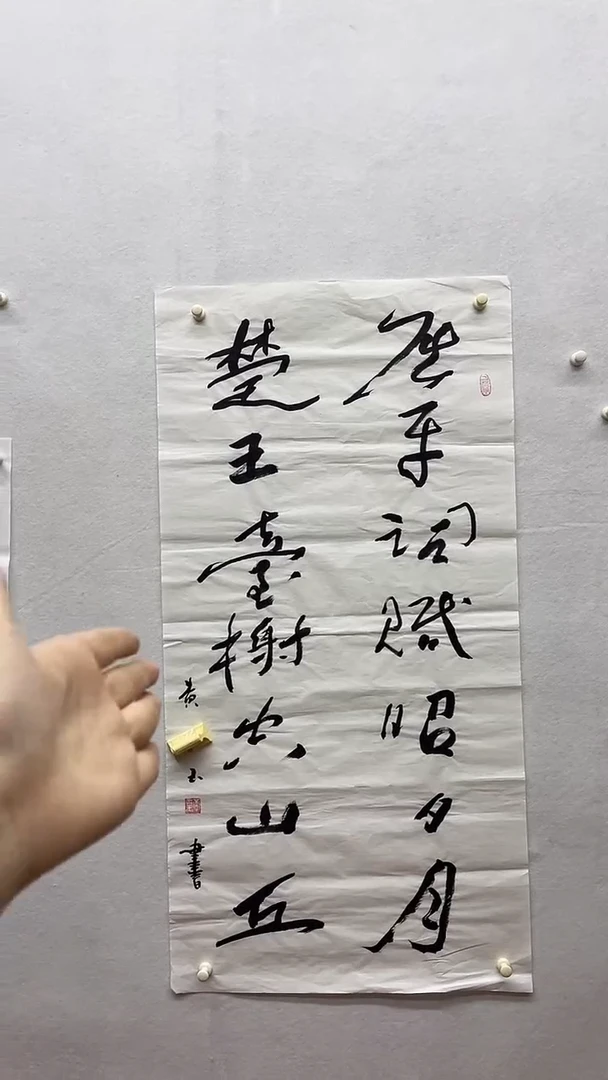 屈平词赋昭夕月
楚王臺榭空山丘
黄玉書